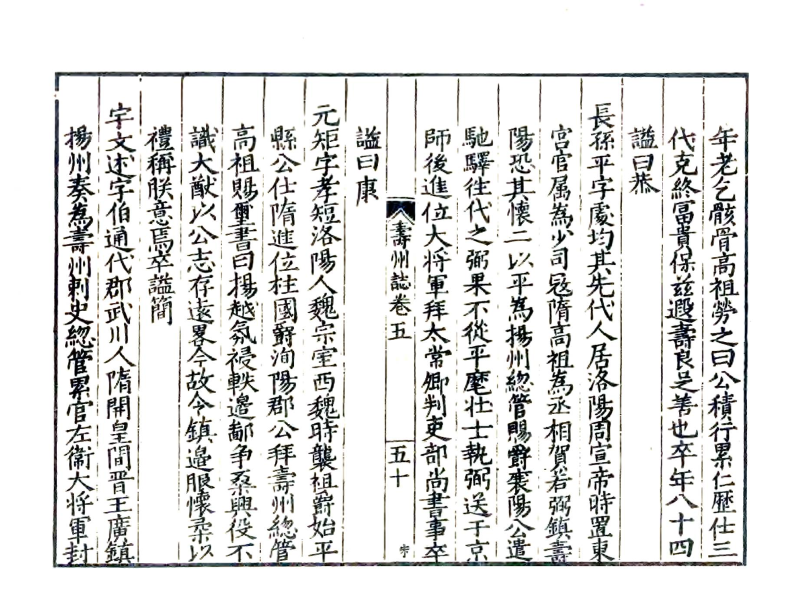 年老乞骸骨高祖勞之曰公積行累仁歷仕三
代克終富貴保茲遐壽良足善也卒年八十四
謚曰恭
長孫平字處均其先代人居洛陽周宣帝時置東
宮官属為少司冦隋高祖為丞相賀若弼鎮壽
陽恐其懷二以平為揚州緫管賜爵襄陽公遣
馳驛往代之弼果不從平麾壮士執弼送于京
師後進位大将軍拜太常卿判吏部尚書事卒
謚曰康
元矩字孝矩洛陽人魏宗室西魏時襲祖爵始平
縣公仕隋進位柱國爵洵陽郡公拜壽州緫管
高祖賜璽書曰揚越氛祲軼邉鄙争桑興役不
識大猷以公志存遠畧今故令鎮邉服懷柔以
禮稱朕意焉卒謚簡
宇文述字伯通代郡武川人隋開皇間晋王廣鎮
揚州奏為壽州刺史緫管累官左衞大将軍封
壽州誌卷五
五十